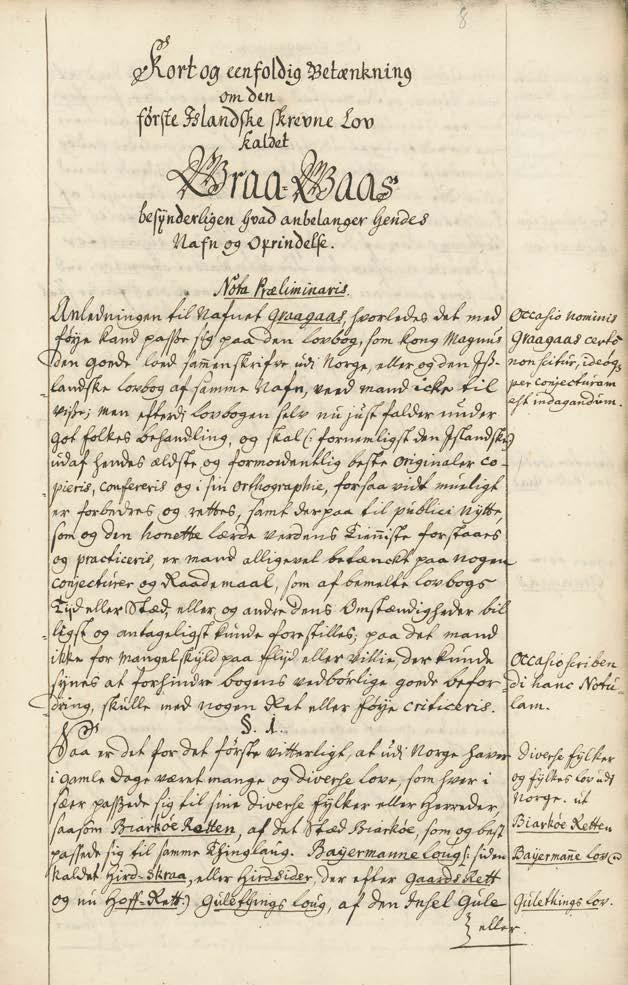 8
Kort og eenfoldig Betænkning
om den
første Islandske skrevne Lov
kaldet
Graa-Gaas
besÿnderligen hvad anbelanger hendes
Nafn og Oprindelse.
Nota Præliminaris.
Anledningen til Nafnet Graagaas, hvorledes det med
føÿe kand passe sig paa den lovbog, som kong Magnus
den goede loed sammenskrifve udi Norge, eller og den Is-
landske lovbog af samme Nafn, veed mand icke til
visse; men efterdi lovbogen selv nu just falder under
got folkes behandling, og skal (: fornemligst den Islandske:)
udaf hendes ældste og formodentlig beste originaler co-
pieris, confereris og i sin orthographie, forsaa vidt mueligt
er forbedres og rettes, samt der paa til publici nÿtte,
som og den honette lærde verdens tieniste forstaaes
og practiceris, er mand alligevel betænckt paa nogen
conjecturer og Raademaal, som af bemelte lovbogs
Tijd eller Stæd, eller og andre dens Omstændigheder bil-
ligst og antageligst kunde forestilles; paa det mand
ikke for Mangel skÿld paa flijd eller villie, der kunde
sÿnes at forhindre bogens vedbørlige goede befor-
dring, skulle med nogen Ret eller føÿe criticeris.
§. 1.
Saa er det for det første vitterligt, at udi Norge haver
i gamle dage været mange og diverse love, som hver i
sær passede sig til sine diverse fÿlker eller Herreder,
saasom Biarkøe Retten, af det Stæd Biarkøe, som og best
passede sig til samme Thinglaug. Baÿermanne loug (: siden
kaldet Hird-Skraa, eller Hirdsider, der efter Gaards Rett
og nu Hoff-Rett:) Gulethings loug, af den Insel Gule
eller.
Occasio nominis
Graagaas certo
non scitur, ideoq,
per conjecturam
est indagandum.
Occasio scriben-
di hanc Notu-
lam.
Diverse fÿlker
og fÿlkes lov udi
Norge. ut
Biarkøe Retten
Baÿermañe lov
Gulethings lov.